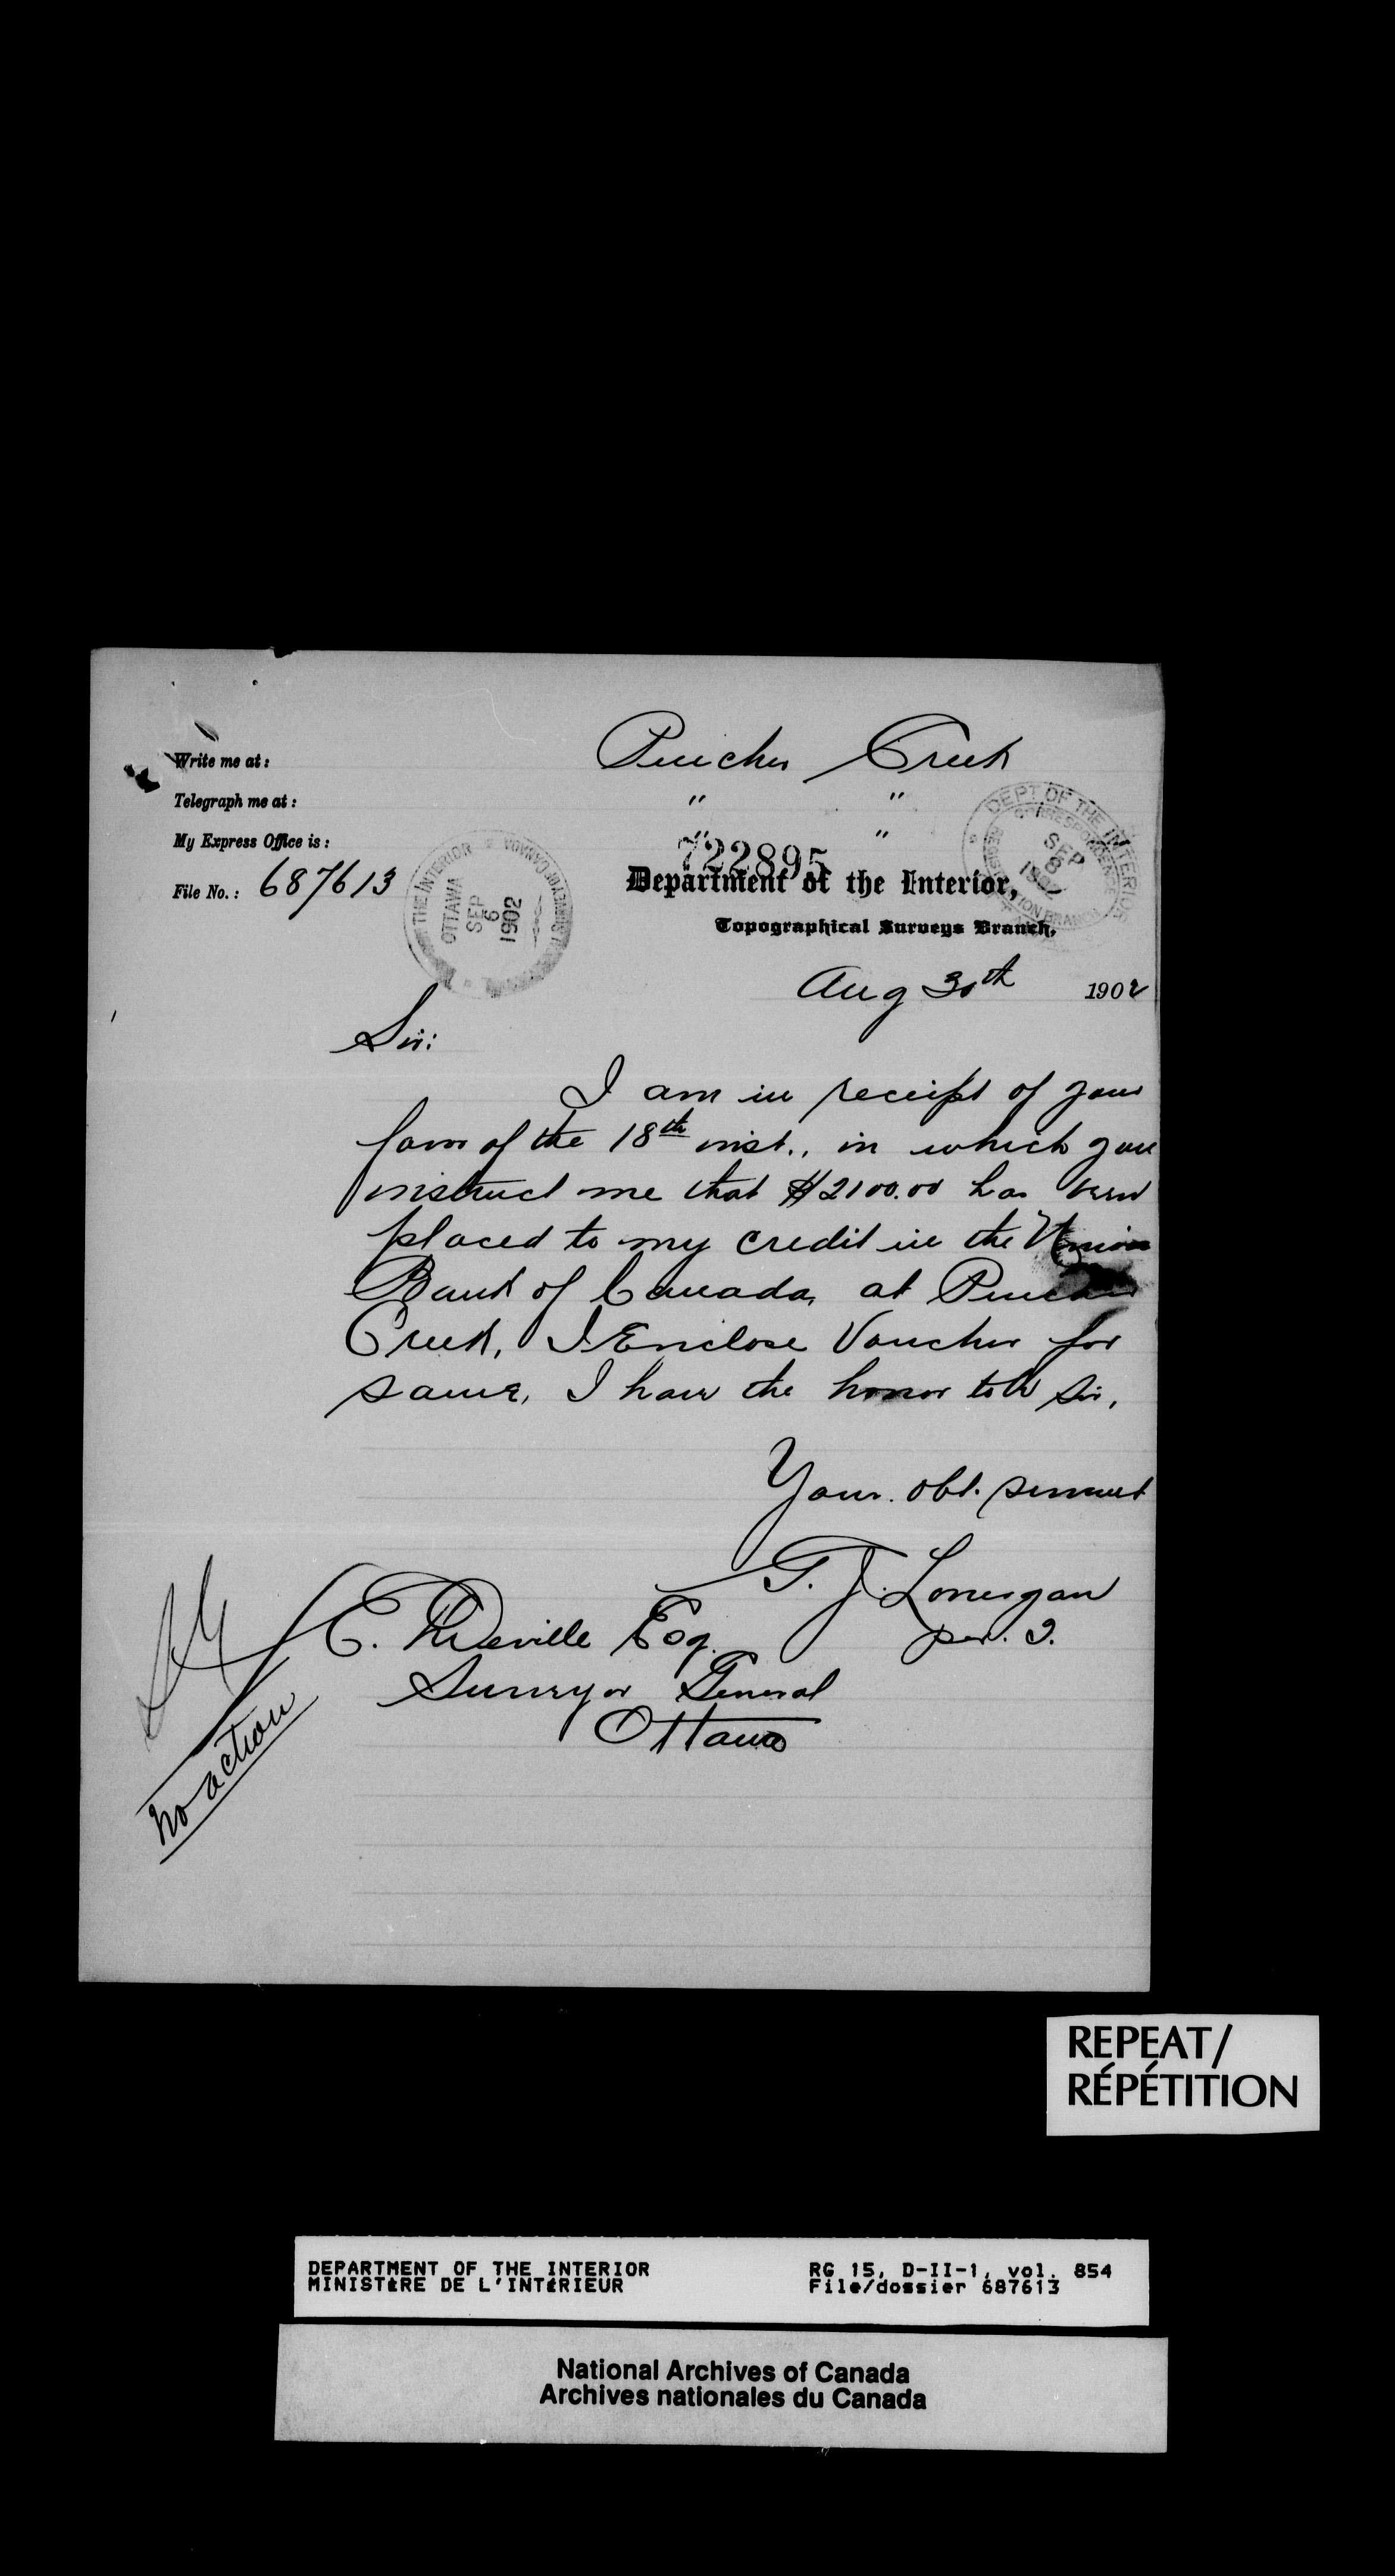 Write me at: Pincher Creek
Telegraph me at: " "
My Express Office is: " "
722895
File No.: 687613
Department of the Interior,
Topographical Surveys Branch,
THE INTERIOR
OTTAWA
SEP
6
1902
SURVEYOR CANADA
DEPT OF THE INTERIOR
CORRESPONDENCE
SEP
6
1902
REGISTRATION BRANCH
Aug 30th 1902
Sir:
I am in receipt of your
favor of the 18th inst., in which you
instruct me that $2100.00 has been
placed to my credit in the Union
Bank of Canada, at Pincher
Creek, I Enclose Voucher for
same, I have the honor to be Sir,
Your. obt. servant
G. J. Lonergan
per. J.
E. Deville Esq.
Surveyor General
Ottawa
no action
REPEAT/
RÉPÉTITION
DEPARTMENT OF THE INTERIOR RG 15, D-II-1, vol. 854
MINISTÈRE DE L'INTÉRIEUR File/dossier 687613
National Archives of Canada
Archives nationales du Canada